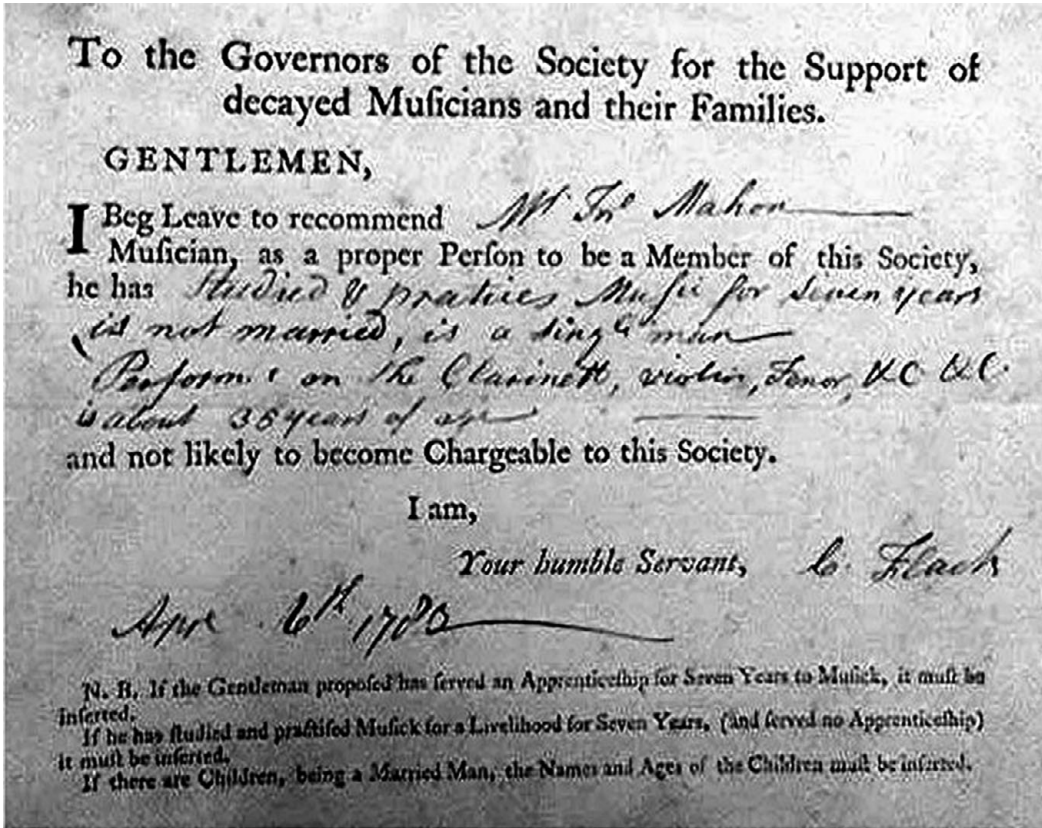 To the Governors of the Society for the Support of
decayed Muſicians and their Families.
GENTLEMEN,
I Beg Leave to recommend Mr Jno Mahon
Muſician, as a proper Perſon to be a Member of this Society,
he has Studied & pratices Muſic for Seven years
is not married, is a singl man
Performs on the Clarinett, violin, Tenor, &C &C.
is about years of age
and not likely to become Chargeable to this Society.
I am,
Your humble Servant, C. Flack
Apr 6th 1783
N. B. If the Gentleman propoſed has ſerved an Apprenticeſhip for Seven Years to Muſick, it muſt be
inſerted.
If he has ſtudied and practiſed Muſick for a Livelihood for Seven Years, (and ſerved no Apprenticeſhip)
it muſt be inſerted.
If there are Children, being a Married Man, the Names and Ages of the Children muſt be inſerted.